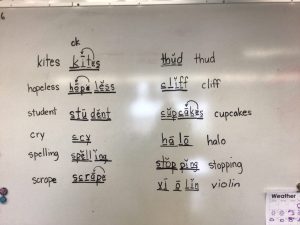 6
ck
kites kites thŭd thud
hopeless hōpe lĕss clĭff cliff
student stū dĕnt cŭpcākes cupcakes
cry cry hā lō halo
spelling spĕllĭng stŏp pĭng stopping
scrape scrāpe vī ō lĭn violin
Weather